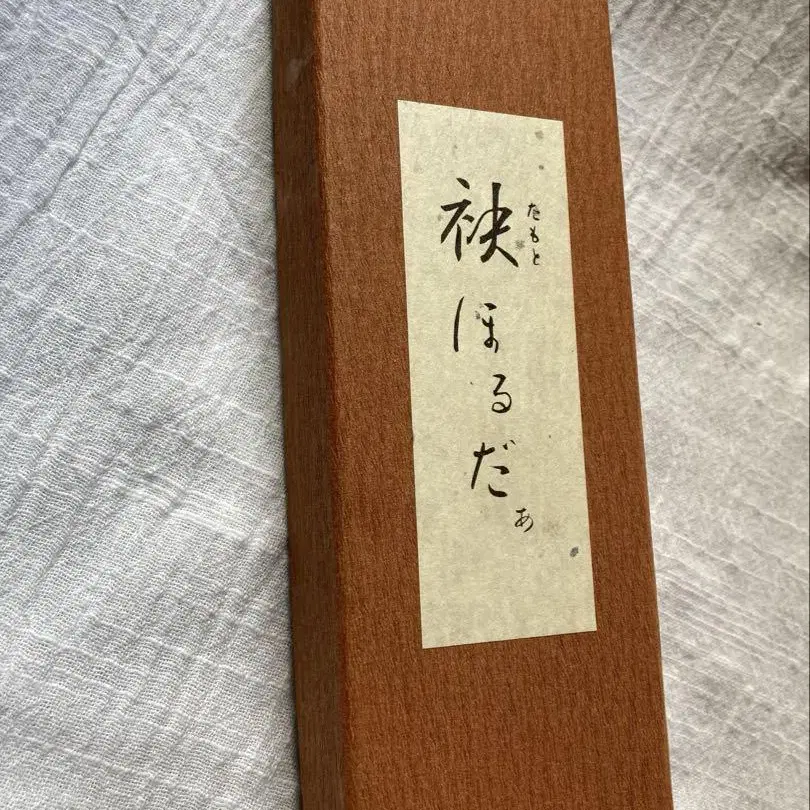 袂ほるだぁ
たもと